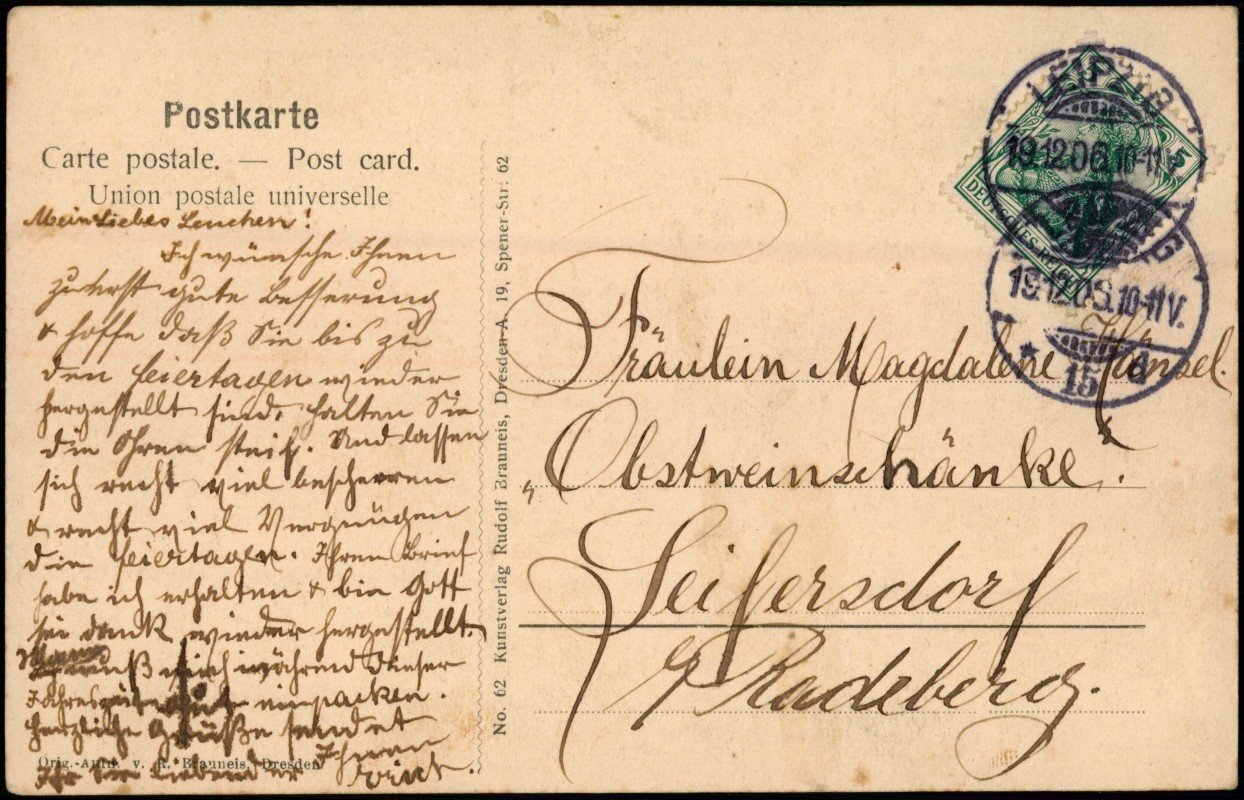 Postkarte
Carte postale. — Post card.
Union postale universelle
Mein liebes Lenchen!
Ich wünsche Ihnen
zuerst gute Besserung
& hoffe daß Sie bis zu
den Feiertagen wieder
hergestellt sind, halten Sie
die Ohren steif. Und lassen
sich recht viel bescherren
& recht viel Vergnügen
die Feiertagen. Ihren Brief
habe ich erhalten & bin Gott
sei dank wieder hergestellt.
muß mich während dieser
Jahreszeit gut einpacken.
Herzliche Grüße sendet
Ihnen
Ihr Sie liebender
Orig.-Aufn. v. R. Brauneis, Dresden
No. 62 Kunstverlag Rudolf Brauneis, Dresden-A 19, Spener-Str. 62
LEIPZIG
19.12.06.10-11V.
5
DEUTSCHES REICH
LEIPZIG
19.12.06.10-11V.
* 15 d
Fräulein Magdalene Hänsel.
„Obstweinschänke".
Seifersdorf
b/ Radeberg.